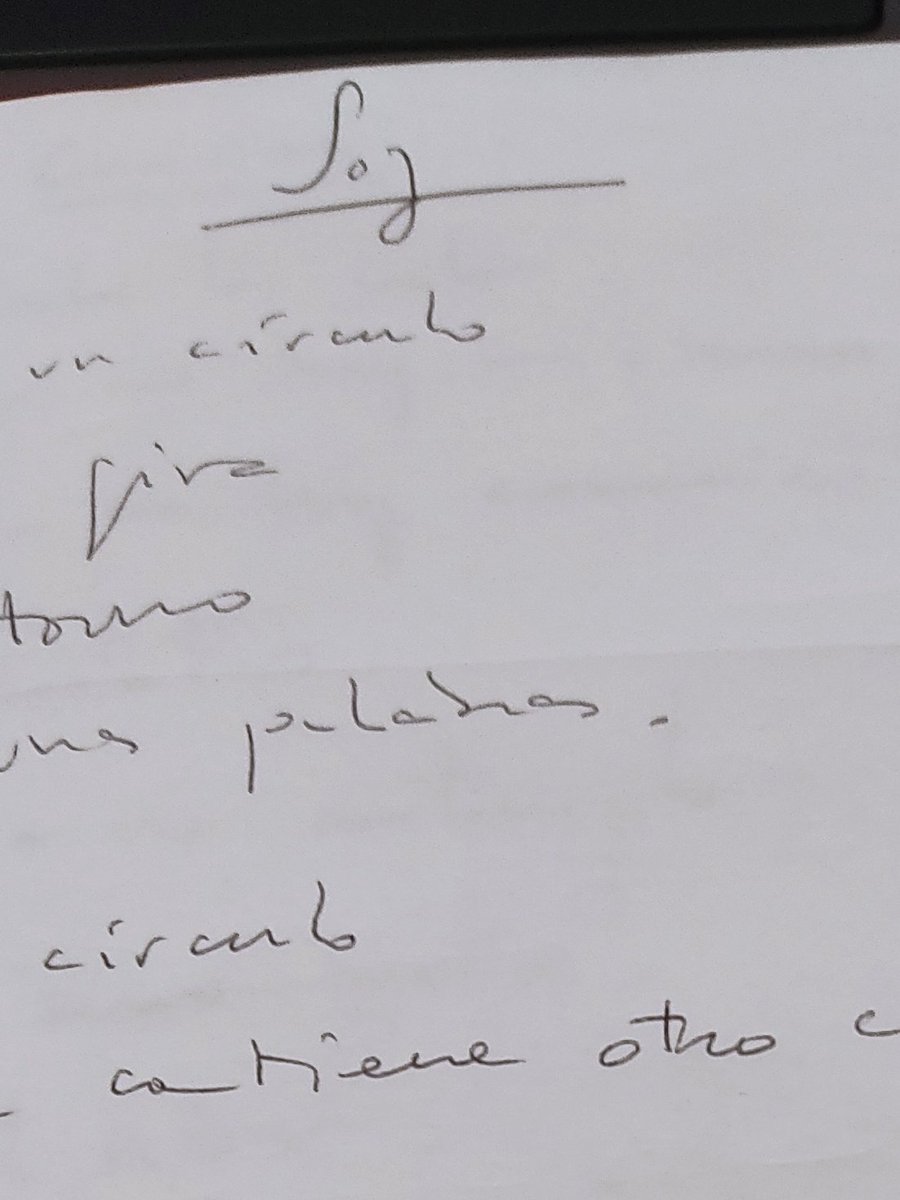 Soy
un círculo
gira
torno
unas palabras.
círculo
contiene otro c